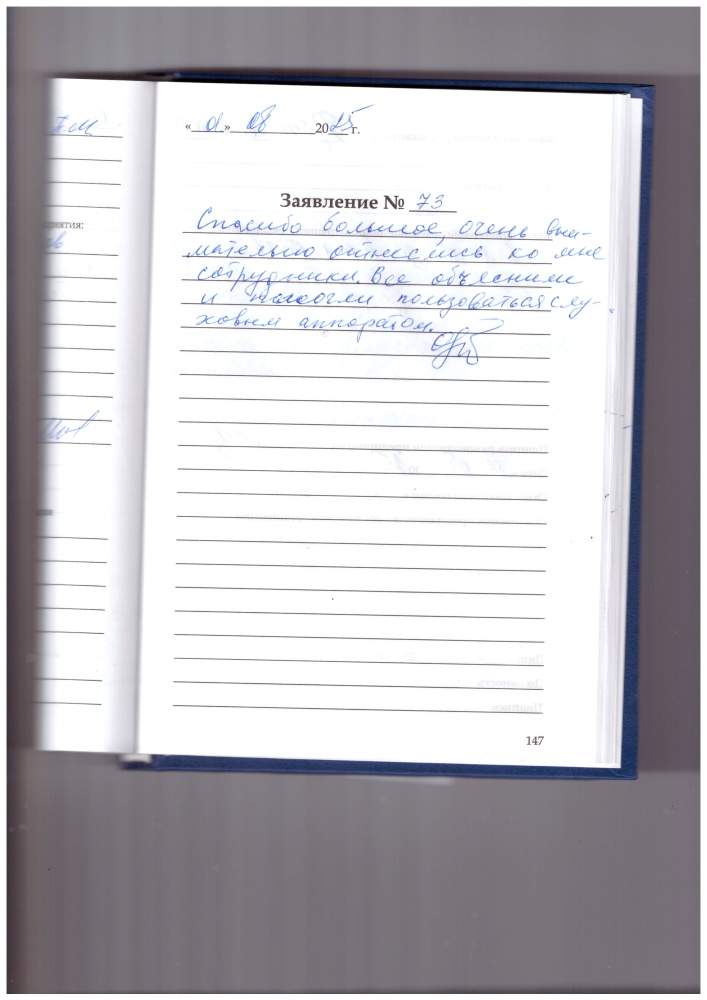 т.м
иятия:
«01» 08 2025 г.
Заявление № 73
Спасибо большое, очень вни-
мательно отнеслись ко мне
сотрудники. Все объяснили
и помогли пользоваться слу-
ховым аппаратом.
147